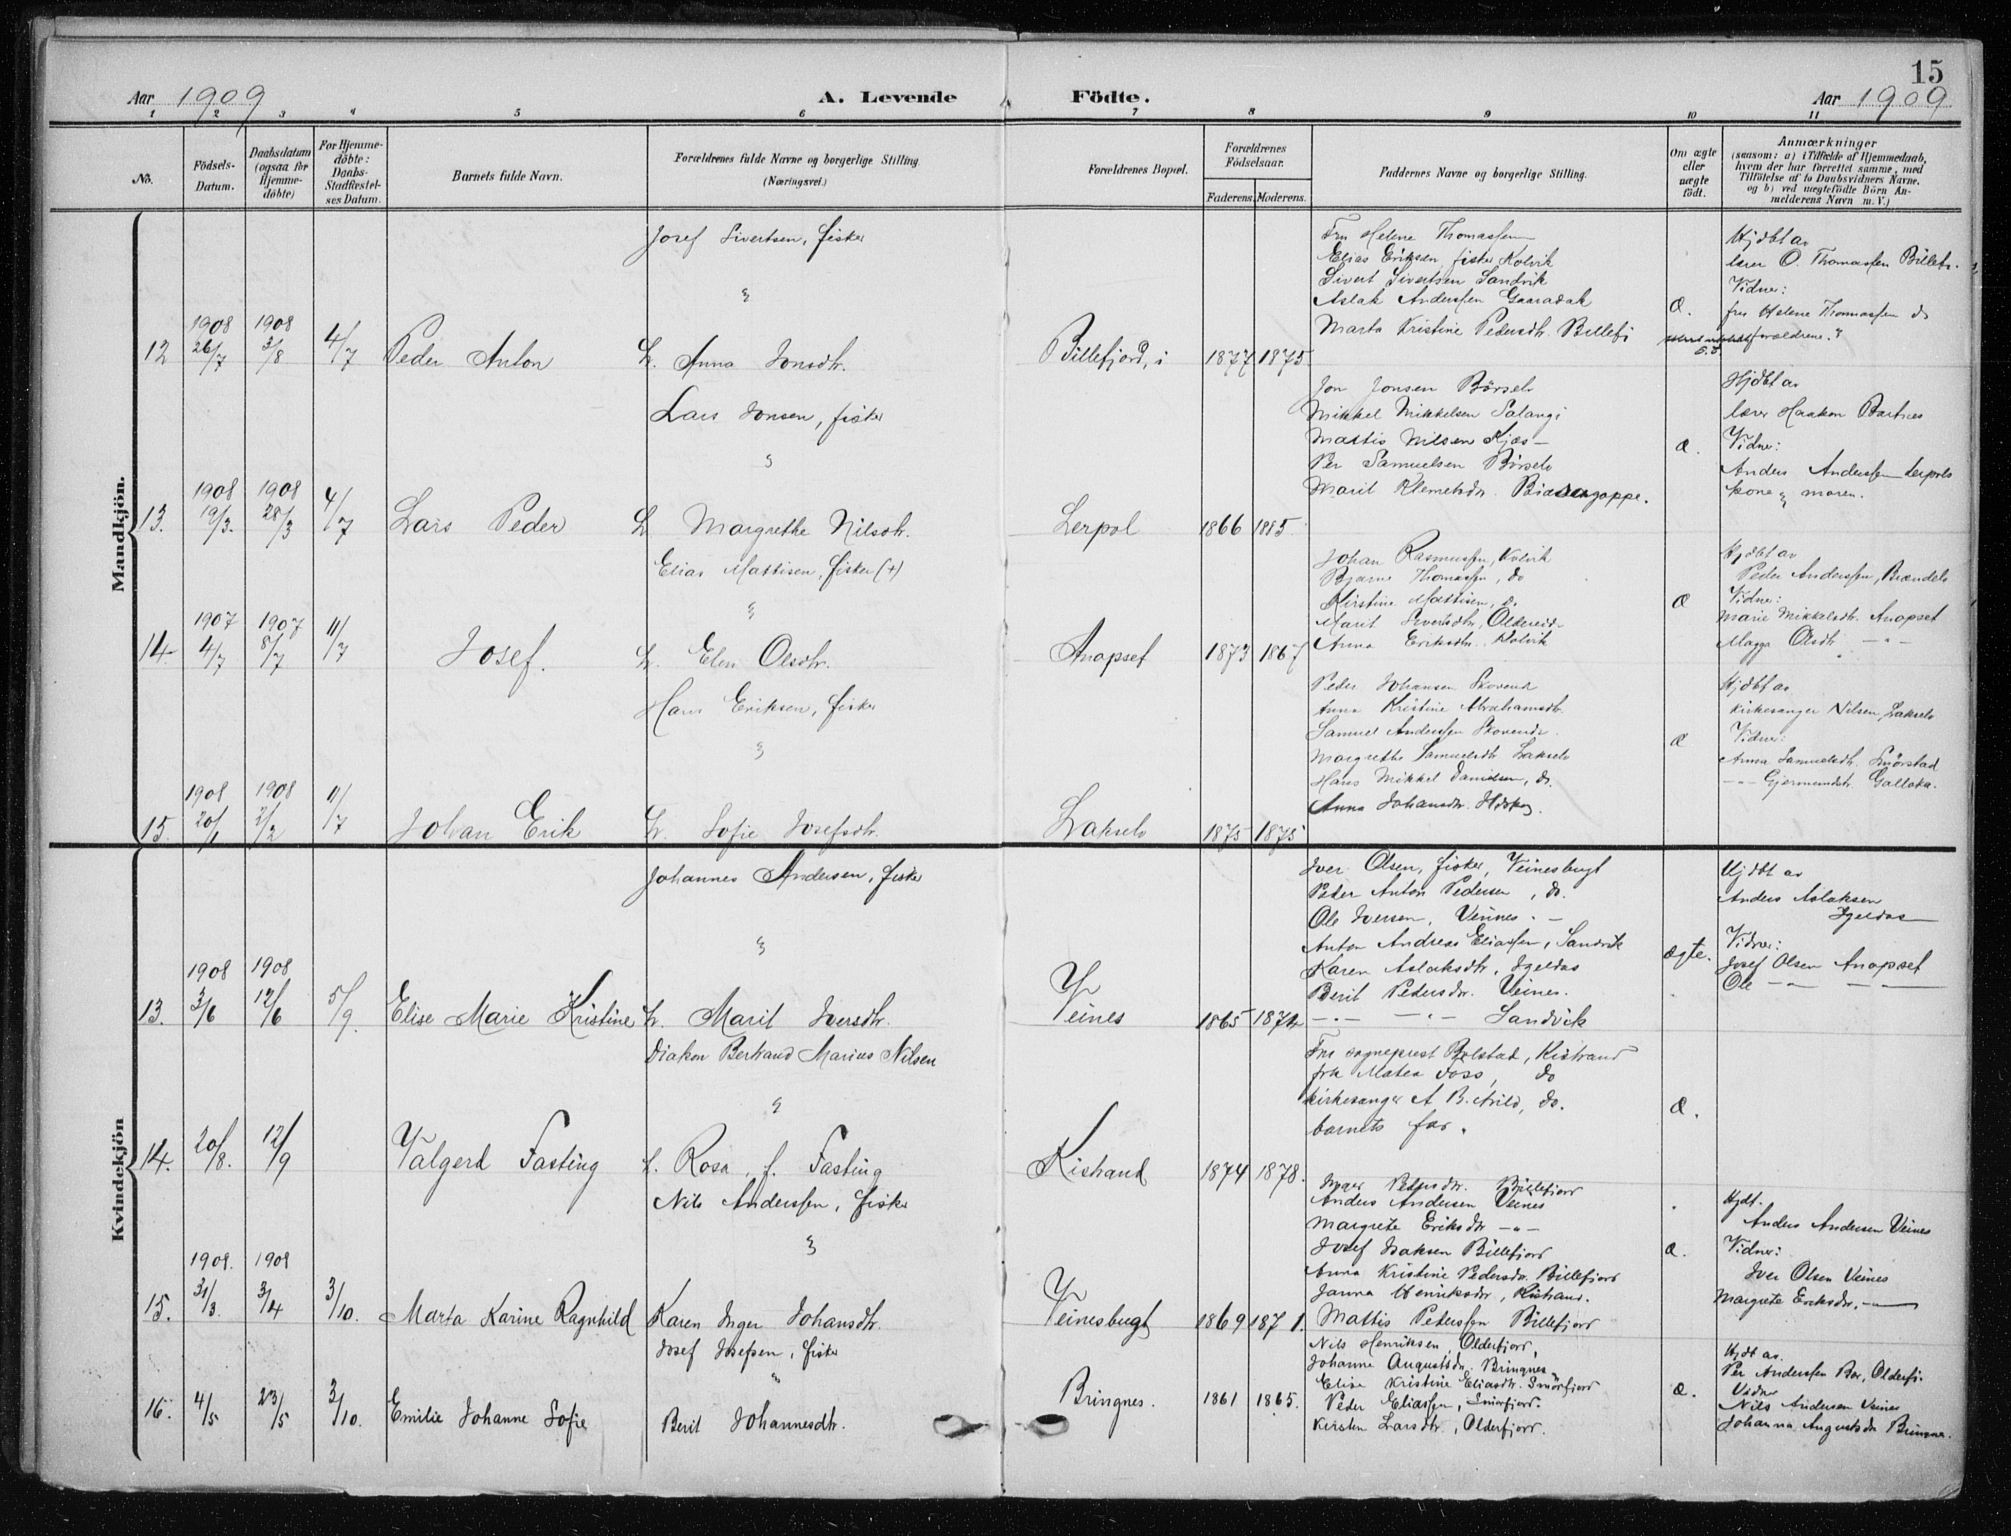 15
Aar 1909
A. Levende
Födte.
Aar 1909
1 2 3 4 5 6 7 8 9 10 11
No.
Födsels-
Datum.
Daabsdatum
(ogsaa for
Hjemme-
döbte)
For Hjemme-
döbte:
Daabs-
Stadfæstel-
ses Datum.
Barnets fulde Navn.
Forældrenes fulde Navne og borgerlige Stilling.
(Næringsvei.)
Forældrenes Bopæl.
Forældrenes
Födselsaar.
Faderens. Moderens.
Faddernes Navne og borgerlige Stilling.
Om ægte
eller
uægte
födt.
Anmærkninger
(saasom: a) i Tilfælde af Hjemmedaab,
hvem der har forrettet samme, med
Tilföielse af to Daabsvidners Navne,
og b) ved uægtefödte Börn An-
melderens Navn m. V.)
Mandkjön.
Josef Sivertsen, fisker
12 1908 26/7 1908 3/8 4/7 Peder Anton
H. Anna Jonsdtr.
Billefjord, i 1877 1875.
Fru Helene Thomassen
Elias Eriksen, fisker Kolvik
Sivert Sivertsen Sandvik
Aslak Anderssen Gaaradak
Marta Kristine Pedersdtr. Billefj
Æ.
Hjdbt av
lærer O. Thomassen Billefj.
Vidner:
fru Helene Thomassen do
forældrene.
Lars Jonsen, fisker
13. 1908 19/3. 1908 28/3 4/7 Lars Peder
H. Margrethe Nilsdtr.
Lerpol 1866 1885.
Jon Jonsen Börselv
Mikkel Mikkelsen Salangi
Mattis Nilsen Kjæs—
Per Samuelsen Börselv
Marit Klemetsdtr.
Æ.
Hjdbt av
lærer Haakon Bartnes
Vidner:
Anders Anderssen Lerpol
kone & moren.
Elias Mattisen, fisker (+)
14. 1907 4/7 1907 8/7 11/7 Josef.
H. Elen Olsdtr.
Anopset 1873 1867
Johan Rasmussen, Kolvik
Bjarne Thomassen, do
Kirstine Mattisen, do
Marit Sivertsdtr,
Anna Eriksdtr. Kolvik
Æ
Hjdbt av
Peder Anderssen, Brændelv
Vidner:
Marie Mikkelsdtr. Anopset
Magga Olsdtr — " —
Hans Eriksen, fisker
15. 1908 20/1 1908 2/2 11/7 Johan Erik
H. Sofie Josefsdtr.
Lakselv 1875 1875
Peder Johansen Skovend
Anna Kristine Abrahamsdtr.
Samuel Anderssen Skovende.
Margrethe Samuelsdtr Lakselv
Hans Mikkel Danielsen, do.
Anna Johansdtr.
Æ
Hjdbt av
kirkesanger Nilsen, Lakselv
Vidner:
Anna Samuelsdtr. Smörstad
— " — Gjermundstr. Galloka.
Kvindekjön
Johannes Andersen, fisker
13. 1908 3/6 1908 12/6 5/9. Elise Marie Kristine
H. Marit Iversdtr.
Veines 1865 1872
Iver Olsen, fisker, Veinesbugt
Peder Anton Pedersen, do.
Ole Iversen, Veines. —
Anton Andreas Eliassen, Sandvik
Karen Aslaksdtr, Igeldas
Berit Pedersdtr. Veines.
— . — — " — Sandvik
ægte.
Hjdbt av
Anders Aslaksen
Igeldas
Vidner:
Josef Olsen Anopset
Ole — " — — " —
Diakon Bertrand Marius Nilsen
14. 20/8. 12/9 Valgerd Fasting
H. Rosa, f. Fasting
Kistrand 1874 1878.
Fru sogneprest Bolstad, Kistrand
frk Matea Foss, do
kirkesanger A. B. Arild, do.
barnets far.
Æ.
Nils Anderssen, fisker
15. 1908. 31/3. 1908 3/4 3/10. Marta Karine Ragnhild
Karen Inger Johansdtr.
Veinesbugt 1869 1871.
Inger Pedersdtr. Billefjord
Anders Andersen Veines
Margrete Eriksdtr — " —
Josef Isaksen Billefjord
Anna Kristine Pedersdtr. Billefjord
Janna Henriksdtr, Kistrand.
Mattis Peterssen Billefjord
Æ.
Hjdt.
Anders Andersen Veines
Vidner:
Iver Olsen Veines
Margrete Eriksdtr. — " —
Josef Josefsen, fisker
16. 4/5 23/5 3/10. Emilie Johanne Sofie
Berit Johannesdtr.
Bringnes. 1861 1865.
Nils Henriksen, Olderfjord,
Johanne Augustsdtr. Bringnes
Elise Kristine Eliasdtr. Smörfjord
Peder Eliassen, Smörfjord.
Kirsten Larsdtr., Olderfjord.
Æ.
Hjdt av.
Per Anderssen Bær, Olderfj.
Vidner
Nils Andersen Veines
Johanna Augustsdtr Bringnes.